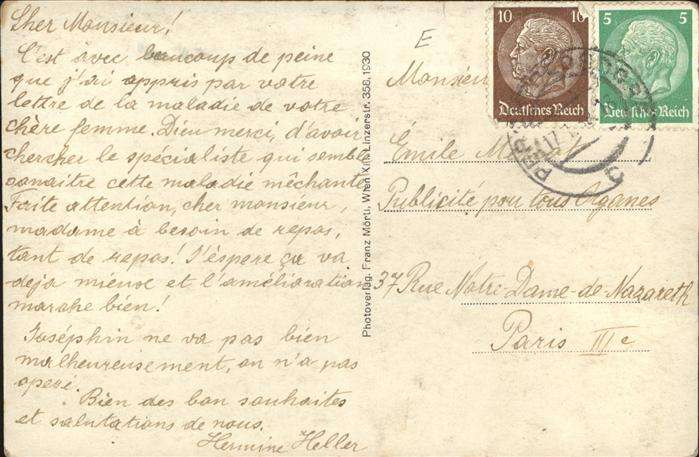 Cher Monsieur!
C'est avec beaucoup de peine
que j'ai appris par votre
lettre de la maladie de votre
chère femme. Dieu merci, d'avoir
chercher le spécialiste qui semble
conaitre cette maladie mêchante
Faite attention, cher monsieur,
madame à besoin de repos,
tant de repos! J'èspere ça va
deja mieux et l'amélioration
marche bien!
Joséphin ne va pas bien
malheureusement, on n'a pas
operé.
Bien des bon souhaites
et salutations de nous.
Hermine Heller
Photoverlag. Franz Mörtl, Wien XIII. Linzerstr. 358, 1930
E
10 10
Deutsches Reich
5 5
Deutsches Reich
Monsieur
Emile
Publicité pou tous Organes
37 Rue Notre-Dame-de-Nazareth
Paris IIIe